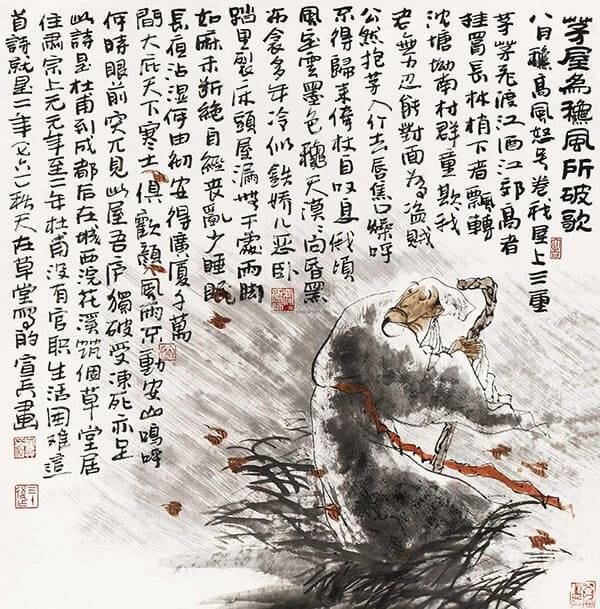 茅屋為穐風所破歌
八月穐高風怒号卷我屋上三重
茅茅飛渡江洒江郊高者
挂罥長林梢下者飄轉
沈塘坳南村群童欺我
老無力忍能對面為盜賊
公然抱茅入竹去唇焦口燥呼
不得歸來倚杖自叹息俄頃
風定雲墨色穐天漠漠向昏黑
布衾多年冷似鉄嬌儿惡卧
踏里裂床頭屋漏無干處雨脚
如麻未断絕自經喪亂少睡眠
長夜沾湿何由彻安得廣厦千萬
間大庇天下寒士俱歡顏風雨不動安山嗚呼
何時眼前突兀見此屋吾庐獨破受凍死亦足
此詩是杜甫到成都后在城西浣花溪筑個草堂居
住肅宗上元元年至二年杜甫没有官职生活困难這
首詩就是二年(七六一)秋天在草堂寫的宣兵畫